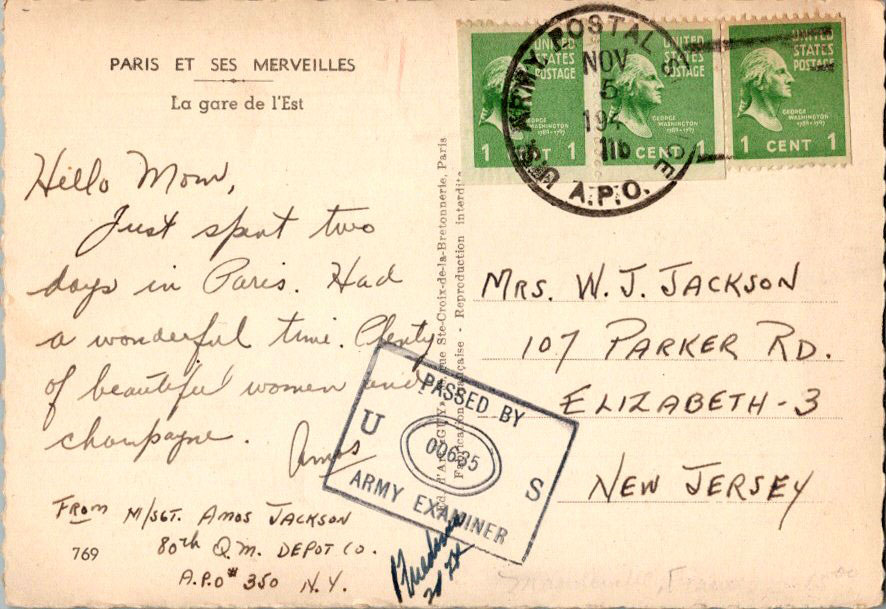 PARIS ET SES MERVEILLES
La gare de l'Est
Hello Mom,
Just spent two
days in Paris. Had
a wonderful time. Plenty
of beautiful women and
champagne. Amos
FROM M/SGT. AMOS JACKSON
80th Q.M. DEPOT CO.
A.P.O# 350 N.Y.
769
rue Ste-Croix-de-la-Bretonnerie, Paris
Fabrication Française - Reproduction interdite
UNITED STATES POSTAGE
GEORGE WASHINGTON
1789-1797
1 CENT 1
UNITED STATES POSTAGE
GEORGE WASHINGTON
1789-1797
1 CENT 1
UNITED STATES POSTAGE
GEORGE WASHINGTON
1789-1797
1 CENT 1
U.S. ARMY POSTAL
NOV
5
194
A.P.O.
MRS. W. J. JACKSON
107 PARKER RD.
ELIZABETH-3
NEW JERSEY
PASSED BY
U 00635 S
ARMY EXAMINER